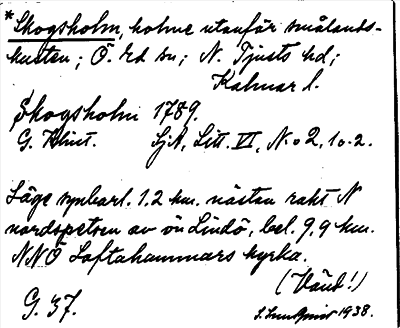 *Skogsholm, holme utanför smålands-
kusten; Ö. Ed sn; N. Tjusts hd;
Kalmar l.
Skogsholm 1789.
G. Klint. SjA, Litt. VI, N:o 2, 10.2.
Läge synbarl. 1.2 km. nästan rakt N
nordspetsen av ön Lindö, bel. 9,9 km.
NNÖ Loftahammars kyrka.
(Vänd!)
G. 37. 1938.